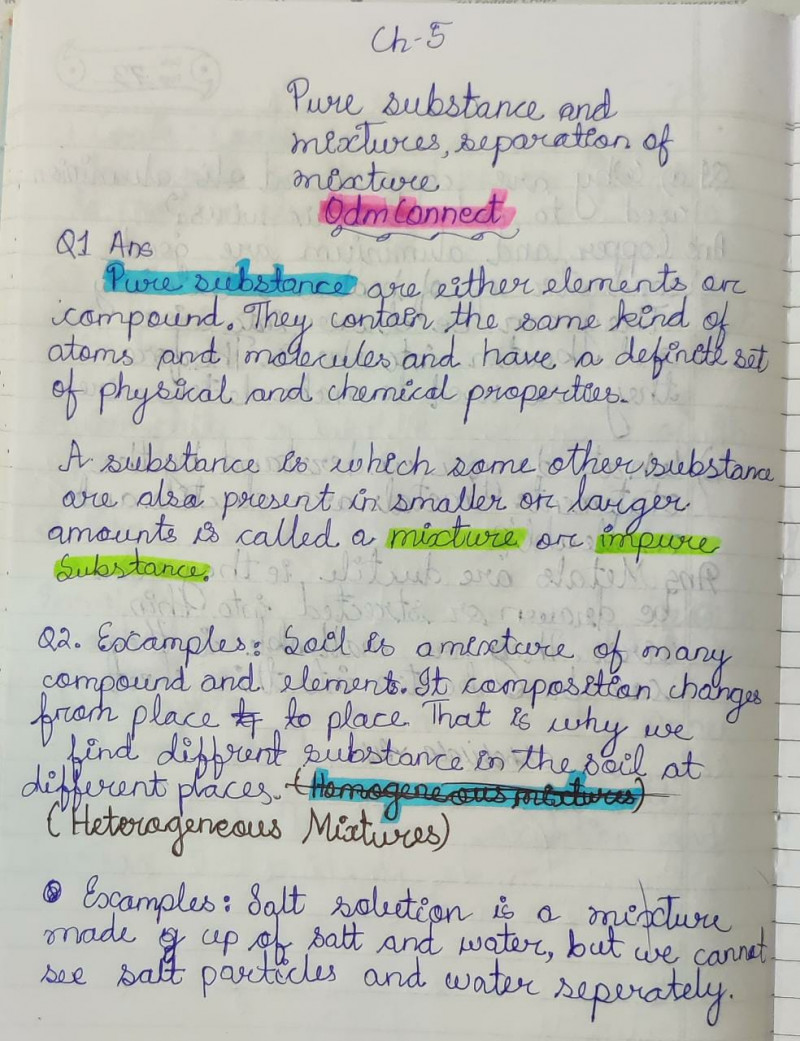 Ch-5
Pure substance and
mixtures, separation of
mixture
Odm Connect
Q1 Ans
Pure substance are either elements or
compound. They contain the same kind of
atoms and molecules and have a definite set
of physical and chemical properties.
A substance is which some other substance
are also present in smaller or larger
amounts is called a mixture or impure
Substance.
Q2. Examples: Soil is a mixture of many
compound and element. It composition changes
from place to place. That is why we
find diffrent substance in the soil at
different places. (Homogeneous mixtures)
(Heterogeneous Mixtures)
Examples: Salt solution is a mixture
made up of satt and water, but we cannot
see salt particles and water seperately.